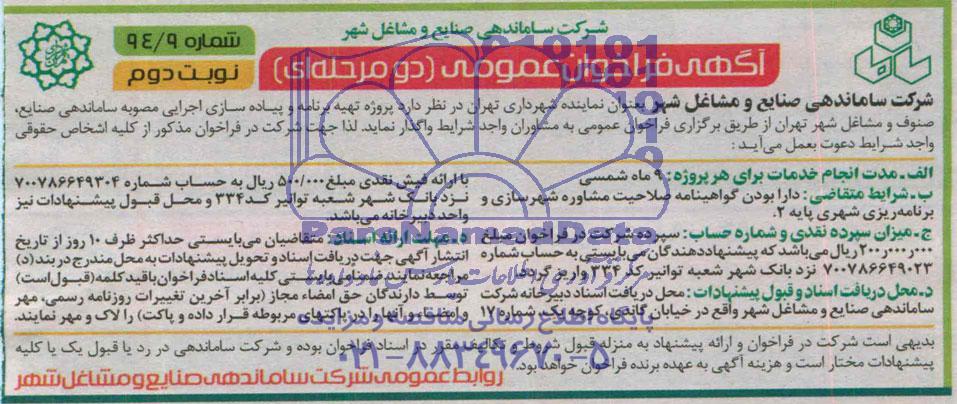 شرکت ساماندهی صنایع و مشاغل شهر
آگهی فراخوان عمومی (دو مرحله‌ای)
شماره ۹۴/۹
نوبت دوم
شرکت ساماندهی صنایع و مشاغل شهر بعنوان نماینده شهرداری تهران در نظر دارد پروژه تهیه برنامه و پیاده سازی اجرایی مصوبه ساماندهی صنایع،
صنوف و مشاغل شهر تهران از طریق برگزاری فراخوان عمومی به مشاوران واجد شرایط واگذار نماید. لذا جهت شرکت در فراخوان مذکور از کلیه اشخاص حقوقی
واجد شرایط دعوت بعمل می‌آید:
الف ـ مدت انجام خدمات برای هر پروژه: ۹ ماه شمسی
ب ـ شرایط متقاضی: دارا بودن گواهینامه صلاحیت مشاوره شهرسازی و
برنامه‌ریزی شهری پایه ۲.
ج ـ میزان سپرده نقدی و شماره حساب: سپرده شرکت در فراخوان مبلغ
۲۰۰٫۰۰۰٫۰۰۰ ریال می‌باشد که پیشنهاددهندگان می‌بایستی به حساب شماره
۷۰۰۷۸۶۶۴۹۰۲۳ نزد بانک شهر شعبه توانیر کد ۳۳۴ واریز گردد.
د ـ محل دریافت اسناد و قبول پیشنهادات: محل دریافت اسناد دبیرخانه شرکت
ساماندهی صنایع و مشاغل شهر واقع در خیابان گاندی، کوچه یک، شماره ۱۷
با ارائه فیش نقدی مبلغ ۵۰۰/۰۰۰ ریال به حساب شماره ۷۰۰۷۸۶۶۴۹۳۰۴
نزد بانک شهر شعبه توانیر کد ۳۳۴ و محل قبول پیشنهادات نیز
واحد دبیرخانه می‌باشد.
ه ـ مهلت ارائه اسناد: متقاضیان می‌بایستی حداکثر ظرف ۱۰ روز از تاریخ
انتشار آگهی جهت دریافت اسناد و تحویل پیشنهادات به محل مندرج در بند (د)
مراجعه نمایند. ضمنا می‌بایستی کلیه اسناد فراخوان باقید کلمه (قبول است)
توسط دارندگان حق امضاء مجاز (برابر آخرین تغییرات روزنامه رسمی، مهر
و امضاء و آنها را در پاکتهای مربوطه قرار داده و پاکت) را لاک و مهر نمایند.
بدیهی است شرکت در فراخوان و ارائه پیشنهاد به منزله قبول شروط و تکالیف مقرر در اسناد فراخوان بوده و شرکت ساماندهی در رد یا قبول یک یا کلیه
پیشنهادات مختار است و هزینه آگهی به عهده برنده فراخوان خواهد بود.
روابط عمومی شرکت ساماندهی صنایع و مشاغل شهر
ParsNamadData
پایگاه اطلاع رسانی مناقصه و مزایده
۰۲۱-۸۸۳۴۹۶۷۰-۵